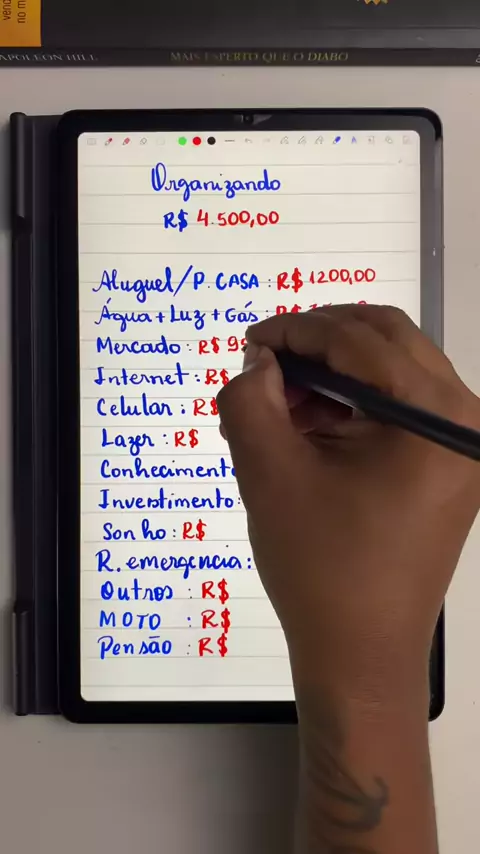 NAPOLEON HILL MAIS ESPERTO QUE O DIABO
Organizando
R$ 4.500,00
Aluguel/P. CASA : R$ 1200,00
Água + Luz + Gás : R$
Mercado : R$
Internet : R$
Celular : R$
Lazer : R$
Conheciment
Investimento :
Sonho : R$
R. emergencia :
Outros : R$
MOTO : R$
Pensão : R$